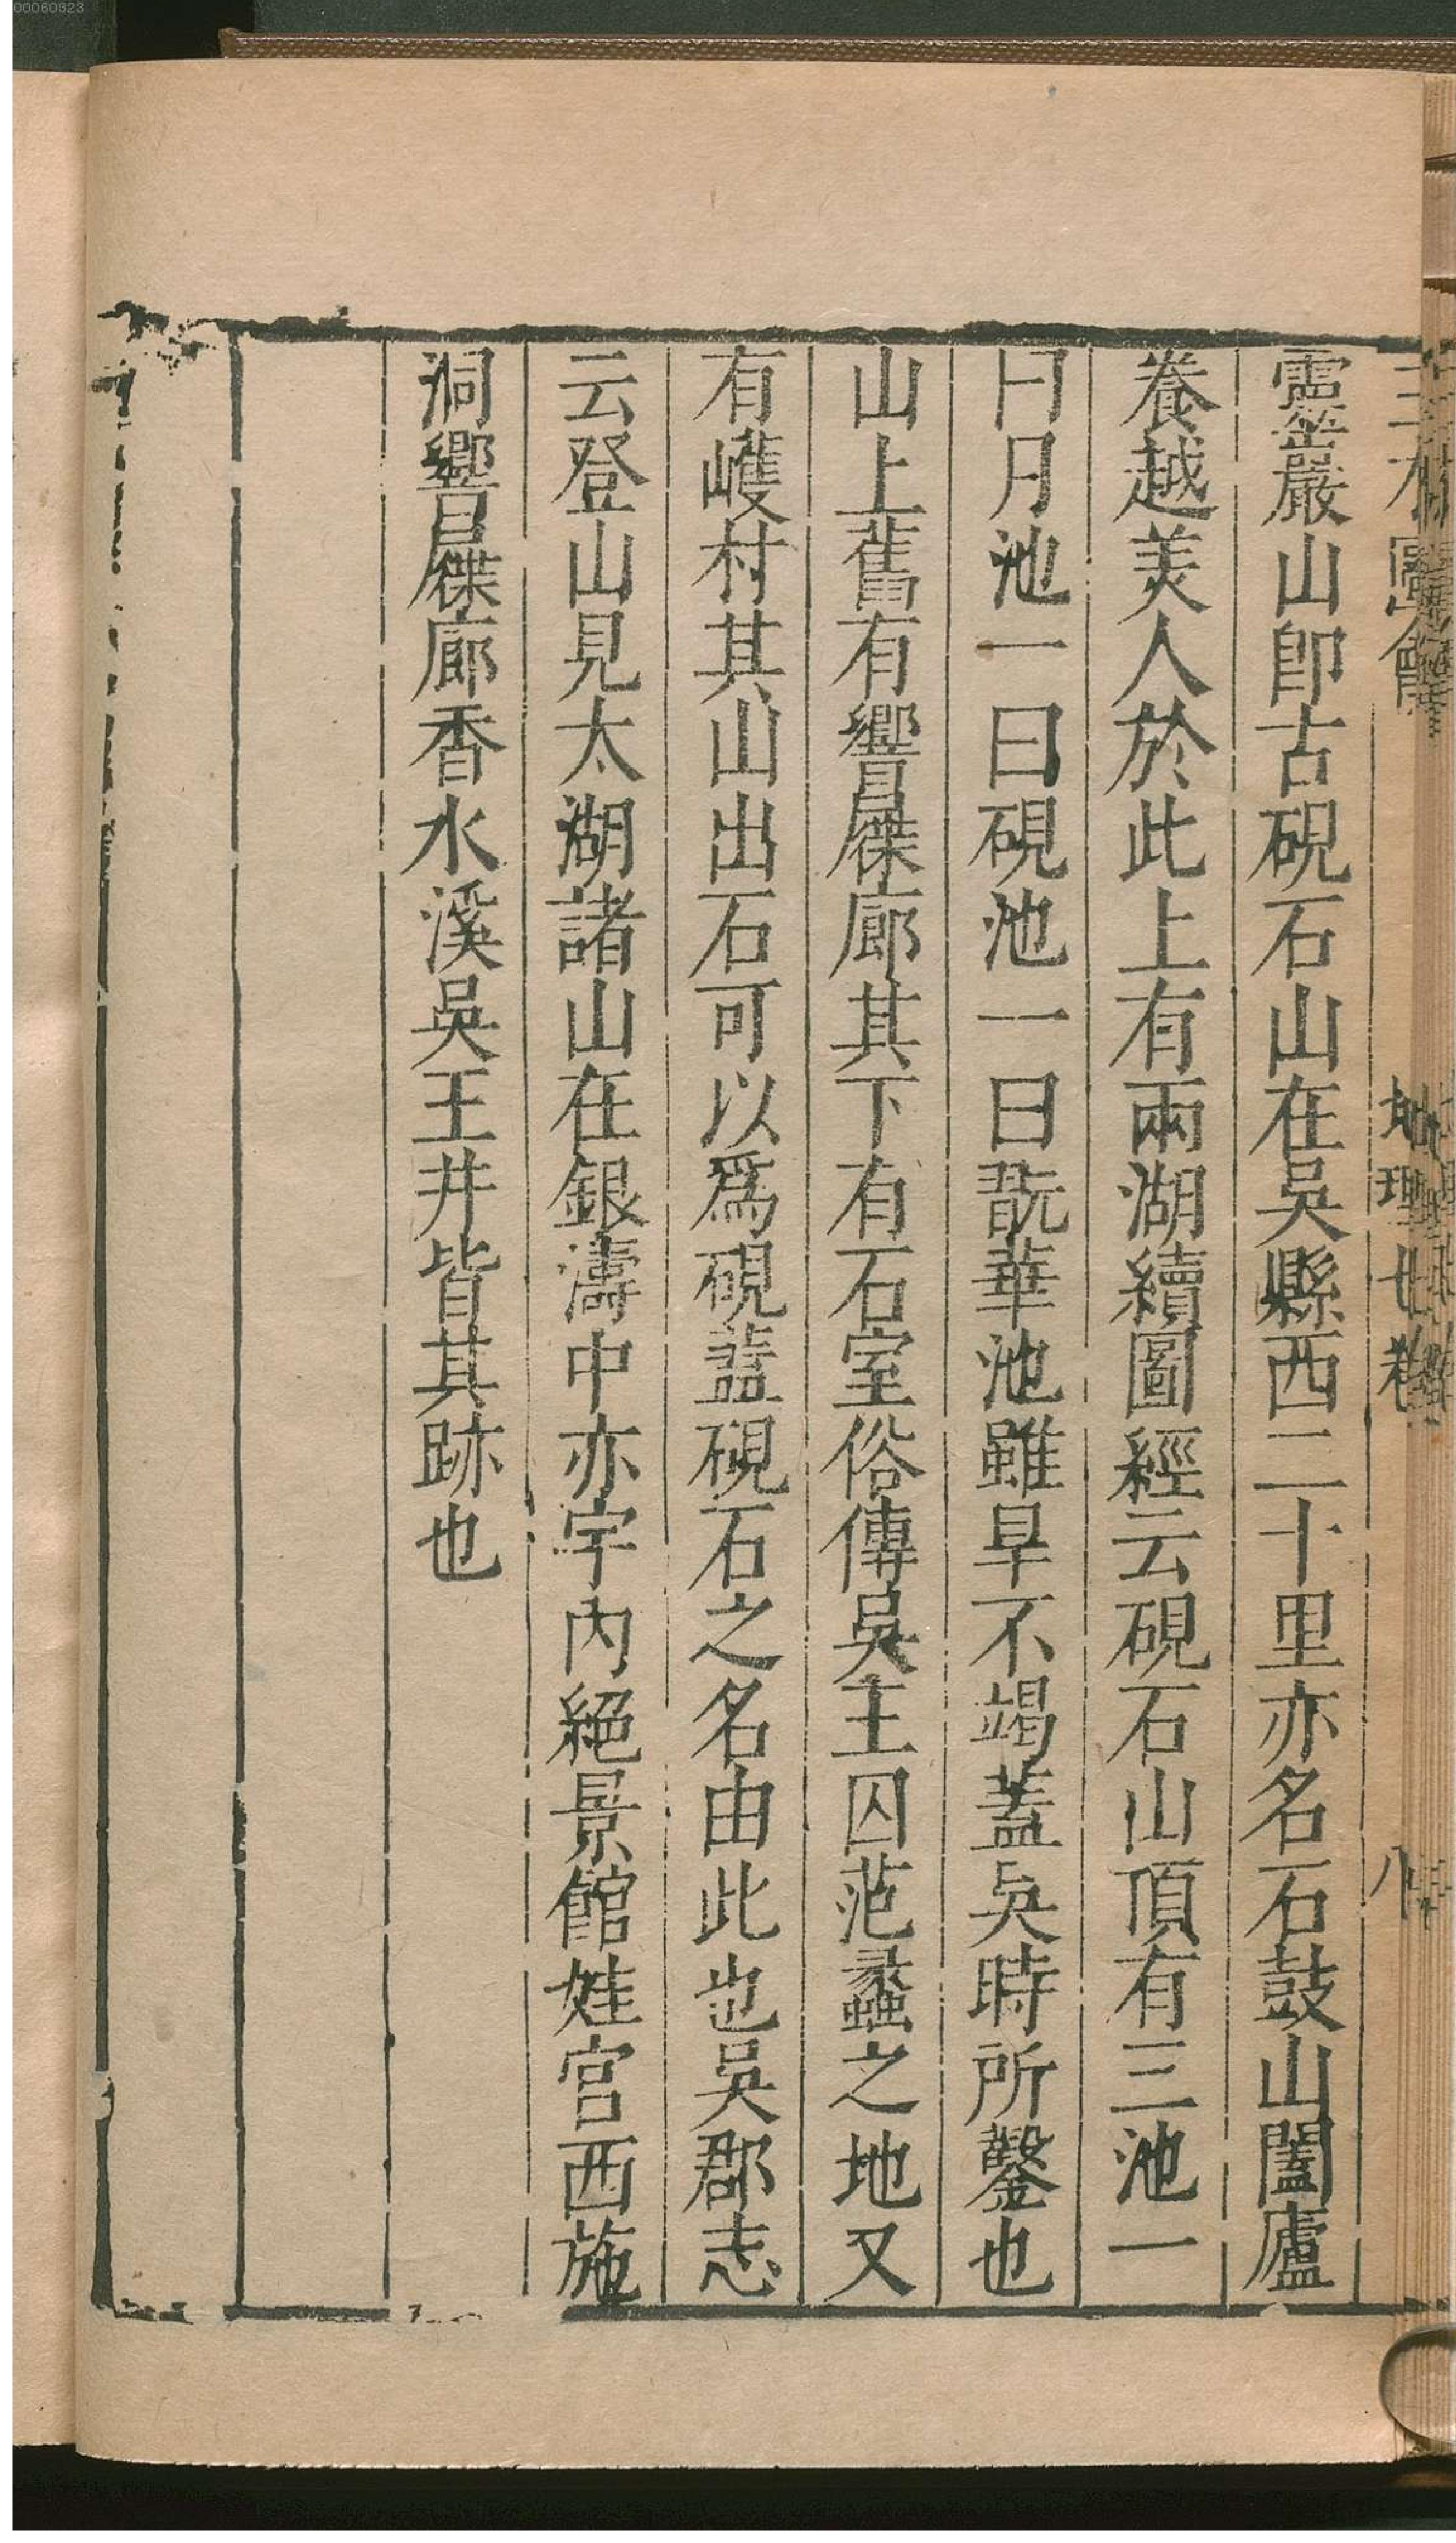 靈巖山卽古硯石山在吳縣西二十里亦名石鼓山闔廬
養越美人於此上有兩湖續圖經云硯石山頂有三池一
曰月池一曰硯池一曰翫華池雖旱不竭蓋吳時所鑿也
山上舊有響屧廊其下有石室俗傳吳王囚范蠡之地又
有嶁村其山出石可以爲硯葢硯石之名由此也吳郡志
云登山見太湖諸山在銀濤中亦宇內絕景館娃宮西施
洞響屧廊香水溪吳王井皆其跡也
三才圖會
地理七卷
八
00060323